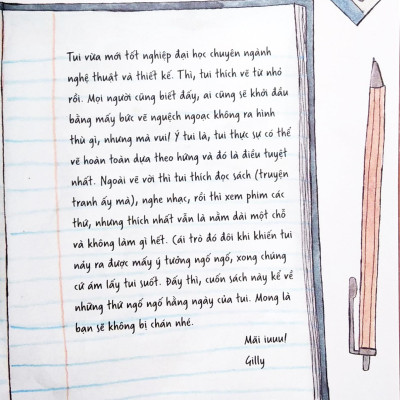 Tui vừa mới tốt nghiệp đại học chuyên ngành
nghệ thuật và thiết kế. Thì, tui thích vẽ từ nhỏ
rồi. Mọi người cũng biết đấy, ai cũng sẽ khởi đầu
bằng mấy bức vẽ nguệch ngoạc không ra hình
thù gì, nhưng mà vui! Ý tui là, tui thực sự có thể
vẽ hoàn toàn dựa theo hứng và đó là điều tuyệt
nhất. Ngoài vẽ vời thì tui thích đọc sách (truyện
tranh ấy mà), nghe nhạc, rồi thì xem phim các
thứ, nhưng thích nhất vẫn là nằm dài một chỗ
và không làm gì hết. Cái trò đó đôi khi khiến tui
nảy ra được mấy ý tưởng ngố ngố, xong chúng
cứ ám lấy tui suốt. Đấy thì, cuốn sách này kể về
những thứ ngố ngố hằng ngày của tui. Mong là
bạn sẽ không bị chán nhé.
Mãi iuuu!
Gilly